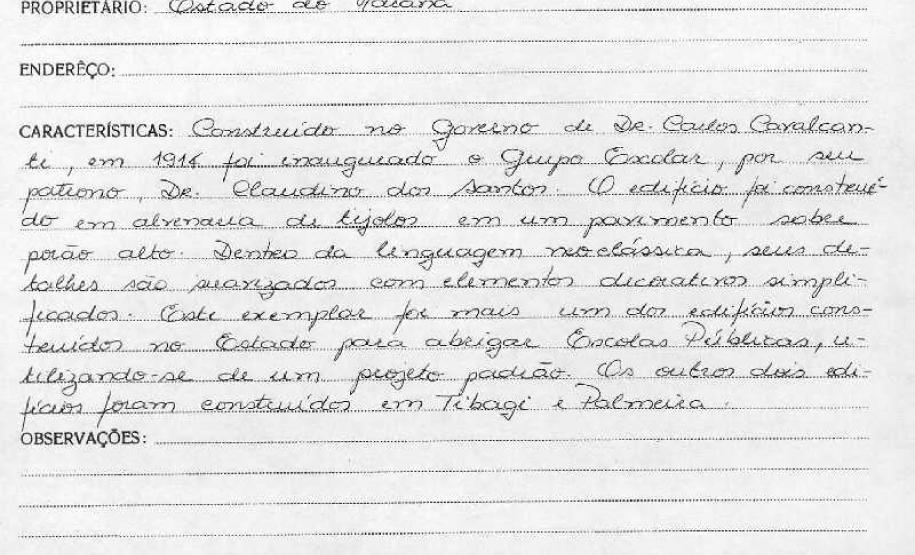 PROPRIETÁRIO: Estado do Paraná
ENDERÊÇO:
CARACTERÍSTICAS: Construído no Governo de Dr. Carlos Cavalcan-
ti, em 1914 foi inaugurado o Grupo Escolar, por seu
patrono, Dr. Claudino dos Santos. O edifício foi construí-
do em alvenaria de tijolos em um pavimento sobre
porão alto. Dentro da linguagem neoclássica, seus de-
talhes são suavizados com elementos decorativos simpli-
ficados. Este exemplar foi mais um dos edifícios cons-
truídos no Estado para abrigar Escolas Públicas, u-
tilizando-se de um projeto padrão. Os outros dois edi-
fícios foram construídos em Tibagi e Palmeira.
OBSERVAÇÕES: